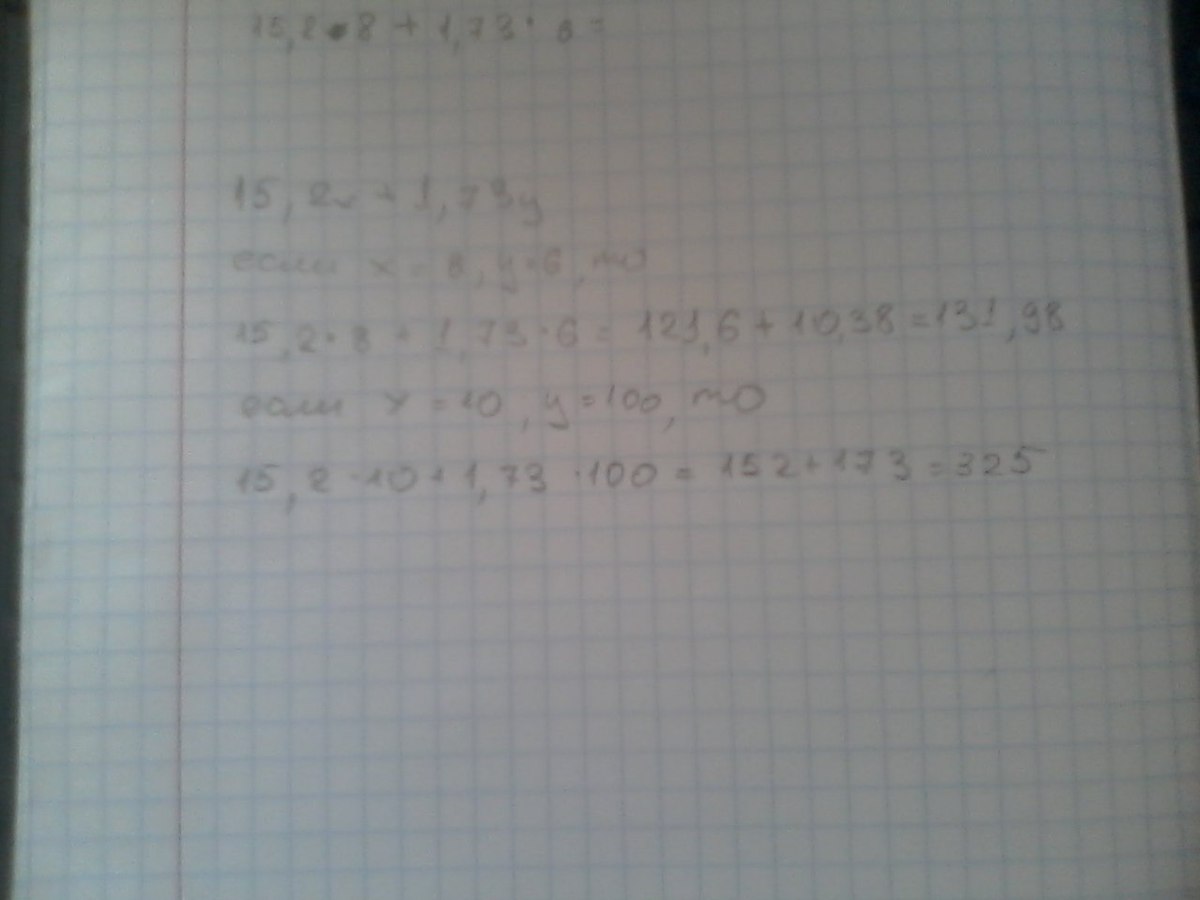 15,2•8 + 1,73 · 6 =
15,2x + 1,73y
если x = 8, y=6, то
15,2·8 + 1,73·6 = 121,6 + 10,38 = 131,98
если x = 10, y = 100, то
15,2 · 10 + 1,73 · 100 = 152 + 173 = 325